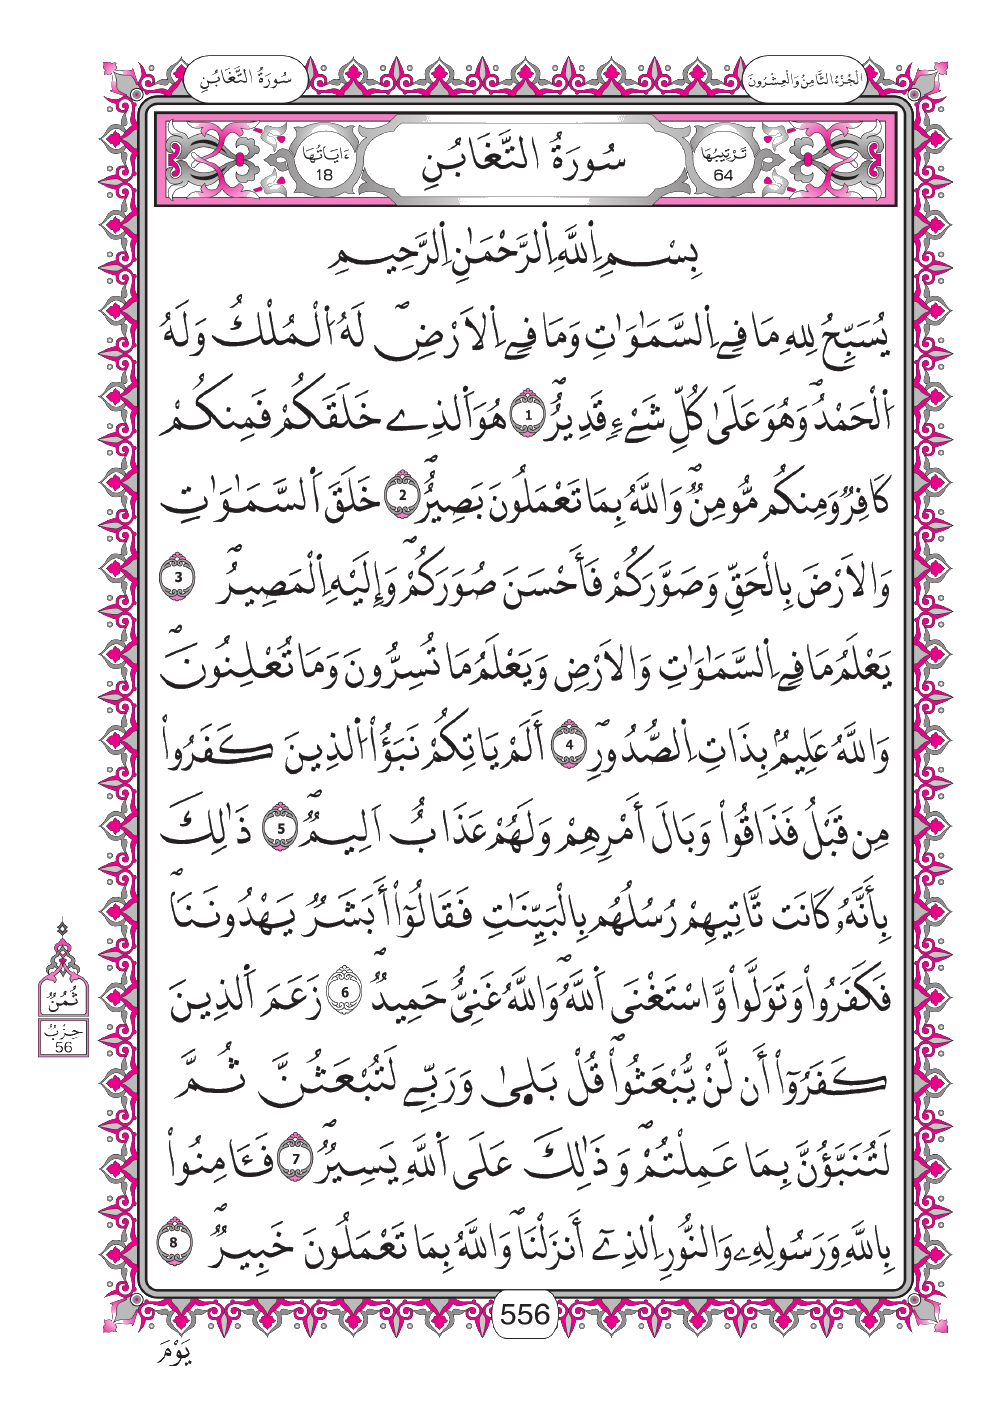 سُورَةُ التَّغَابُنِ
الْجُزْءُ الثَّامِنُ وَالْعِشْرُونَ
تَرْتِيبُهَا 64
سُورَةُ التَّغَابُنِ
ءَايَاتُهَا 18
بِسْمِ اِ۬للَّهِ اِ۬لرَّحْمَٰنِ اِ۬لرَّحِيمِ
يُسَبِّحُ لِلهِ مَا فِے اِ۬لسَّمَٰوَٰتِ وَمَا فِے اِ۬لَارْضِۖ لَهُ اُ۬لْمُلْكُ وَلَهُ
اُ۬لْحَمْدُۖ وَهُوَ عَلَىٰ كُلِّ شَےْءٖ قَدِيرٌۖ 1 هُوَ اَ۬لذِے خَلَقَكُمْ فَمِنكُمْ
كَافِرٞ وَمِنكُم مُّومِنٞۖ وَاللَّهُ بِمَا تَعْمَلُونَ بَصِيرٌۖ 2 خَلَقَ اَ۬لسَّمَٰوَٰتِ
وَالَارْضَ بِالْحَقِّ وَصَوَّرَكُمْ فَأَحْسَنَ صُوَرَكُمْۖ وَإِلَيْهِ اِ۬لْمَصِيرُۖ 3
يَعْلَمُ مَا فِے اِ۬لسَّمَٰوَٰتِ وَالَارْضِ وَيَعْلَمُ مَا تُسِرُّونَ وَمَا تُعْلِنُونَۖ
وَاللَّهُ عَلِيمُۢ بِذَاتِ اِ۬لصُّدُورِۖ 4 أَلَمْ يَاتِكُمْ نَبَؤُاْ اُ۬لذِينَ كَفَرُواْ
مِن قَبْلُ فَذَاقُواْ وَبَالَ أَمْرِهِمْ وَلَهُمْ عَذَابٌ اَلِيمٞۖ 5 ذَٰلِكَ
بِأَنَّهُۥ كَانَت تَّاتِيهِمْ رُسُلُهُم بِالْبَيِّنَٰتِ فَقَالُوٓاْ أَبَشَرٞ يَهْدُونَنَاۖ
فَكَفَرُواْ وَتَوَلَّواْ وَّاسْتَغْنَى اَ۬للَّهُۖ وَاللَّهُ غَنِيٌّ حَمِيدٞۖ 6 زَعَمَ اَ۬لذِينَ
كَفَرُوٓاْ أَن لَّنْ يُّبْعَثُواْۖ قُلْ بَلَىٰ وَرَبِّے لَتُبْعَثُنَّ ثُمَّ
لَتُنَبَّؤُنَّ بِمَا عَمِلْتُمْۖ وَذَٰلِكَ عَلَى اَ۬للَّهِ يَسِيرٞۖ 7 فَـَٔامِنُواْ
بِاللَّهِ وَرَسُولِهِۦ وَالنُّورِ اِ۬لذِےٓ أَنزَلْنَاۖ وَاللَّهُ بِمَا تَعْمَلُونَ خَبِيرٞۖ 8
ثُمُنٞ
حِزْبُ
56
556
يَوْمَ